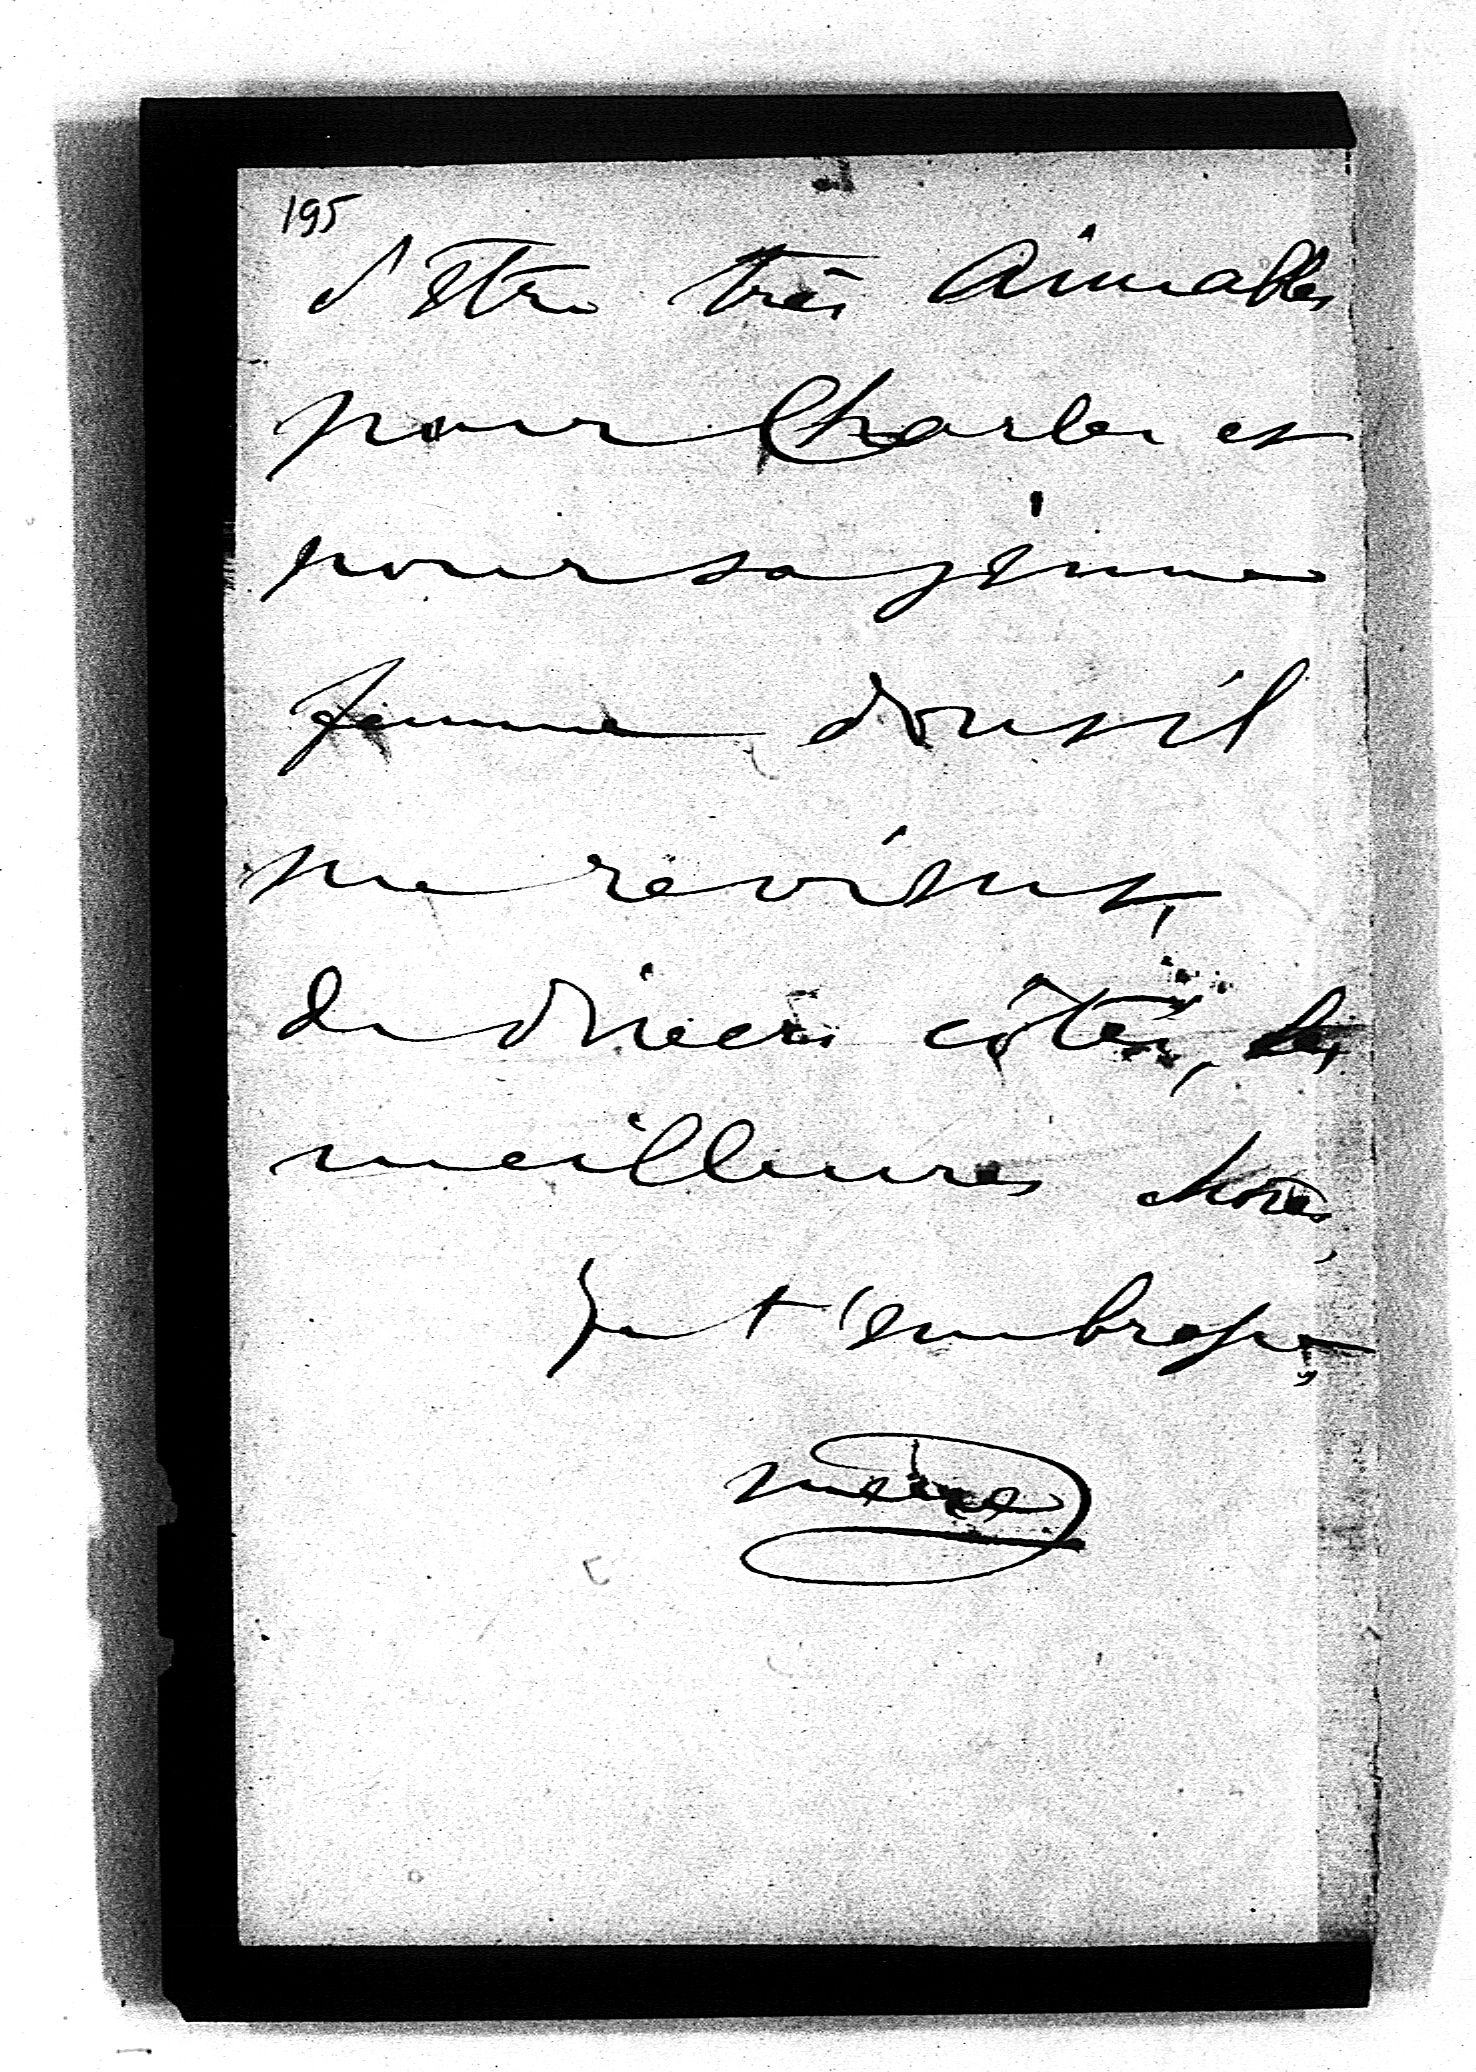 195
d'être très aimables
pour Charles et
pour sa jeune
femme dont il
me revient,
de divers côtés, les
meilleures choses,
Je t'embrasse,